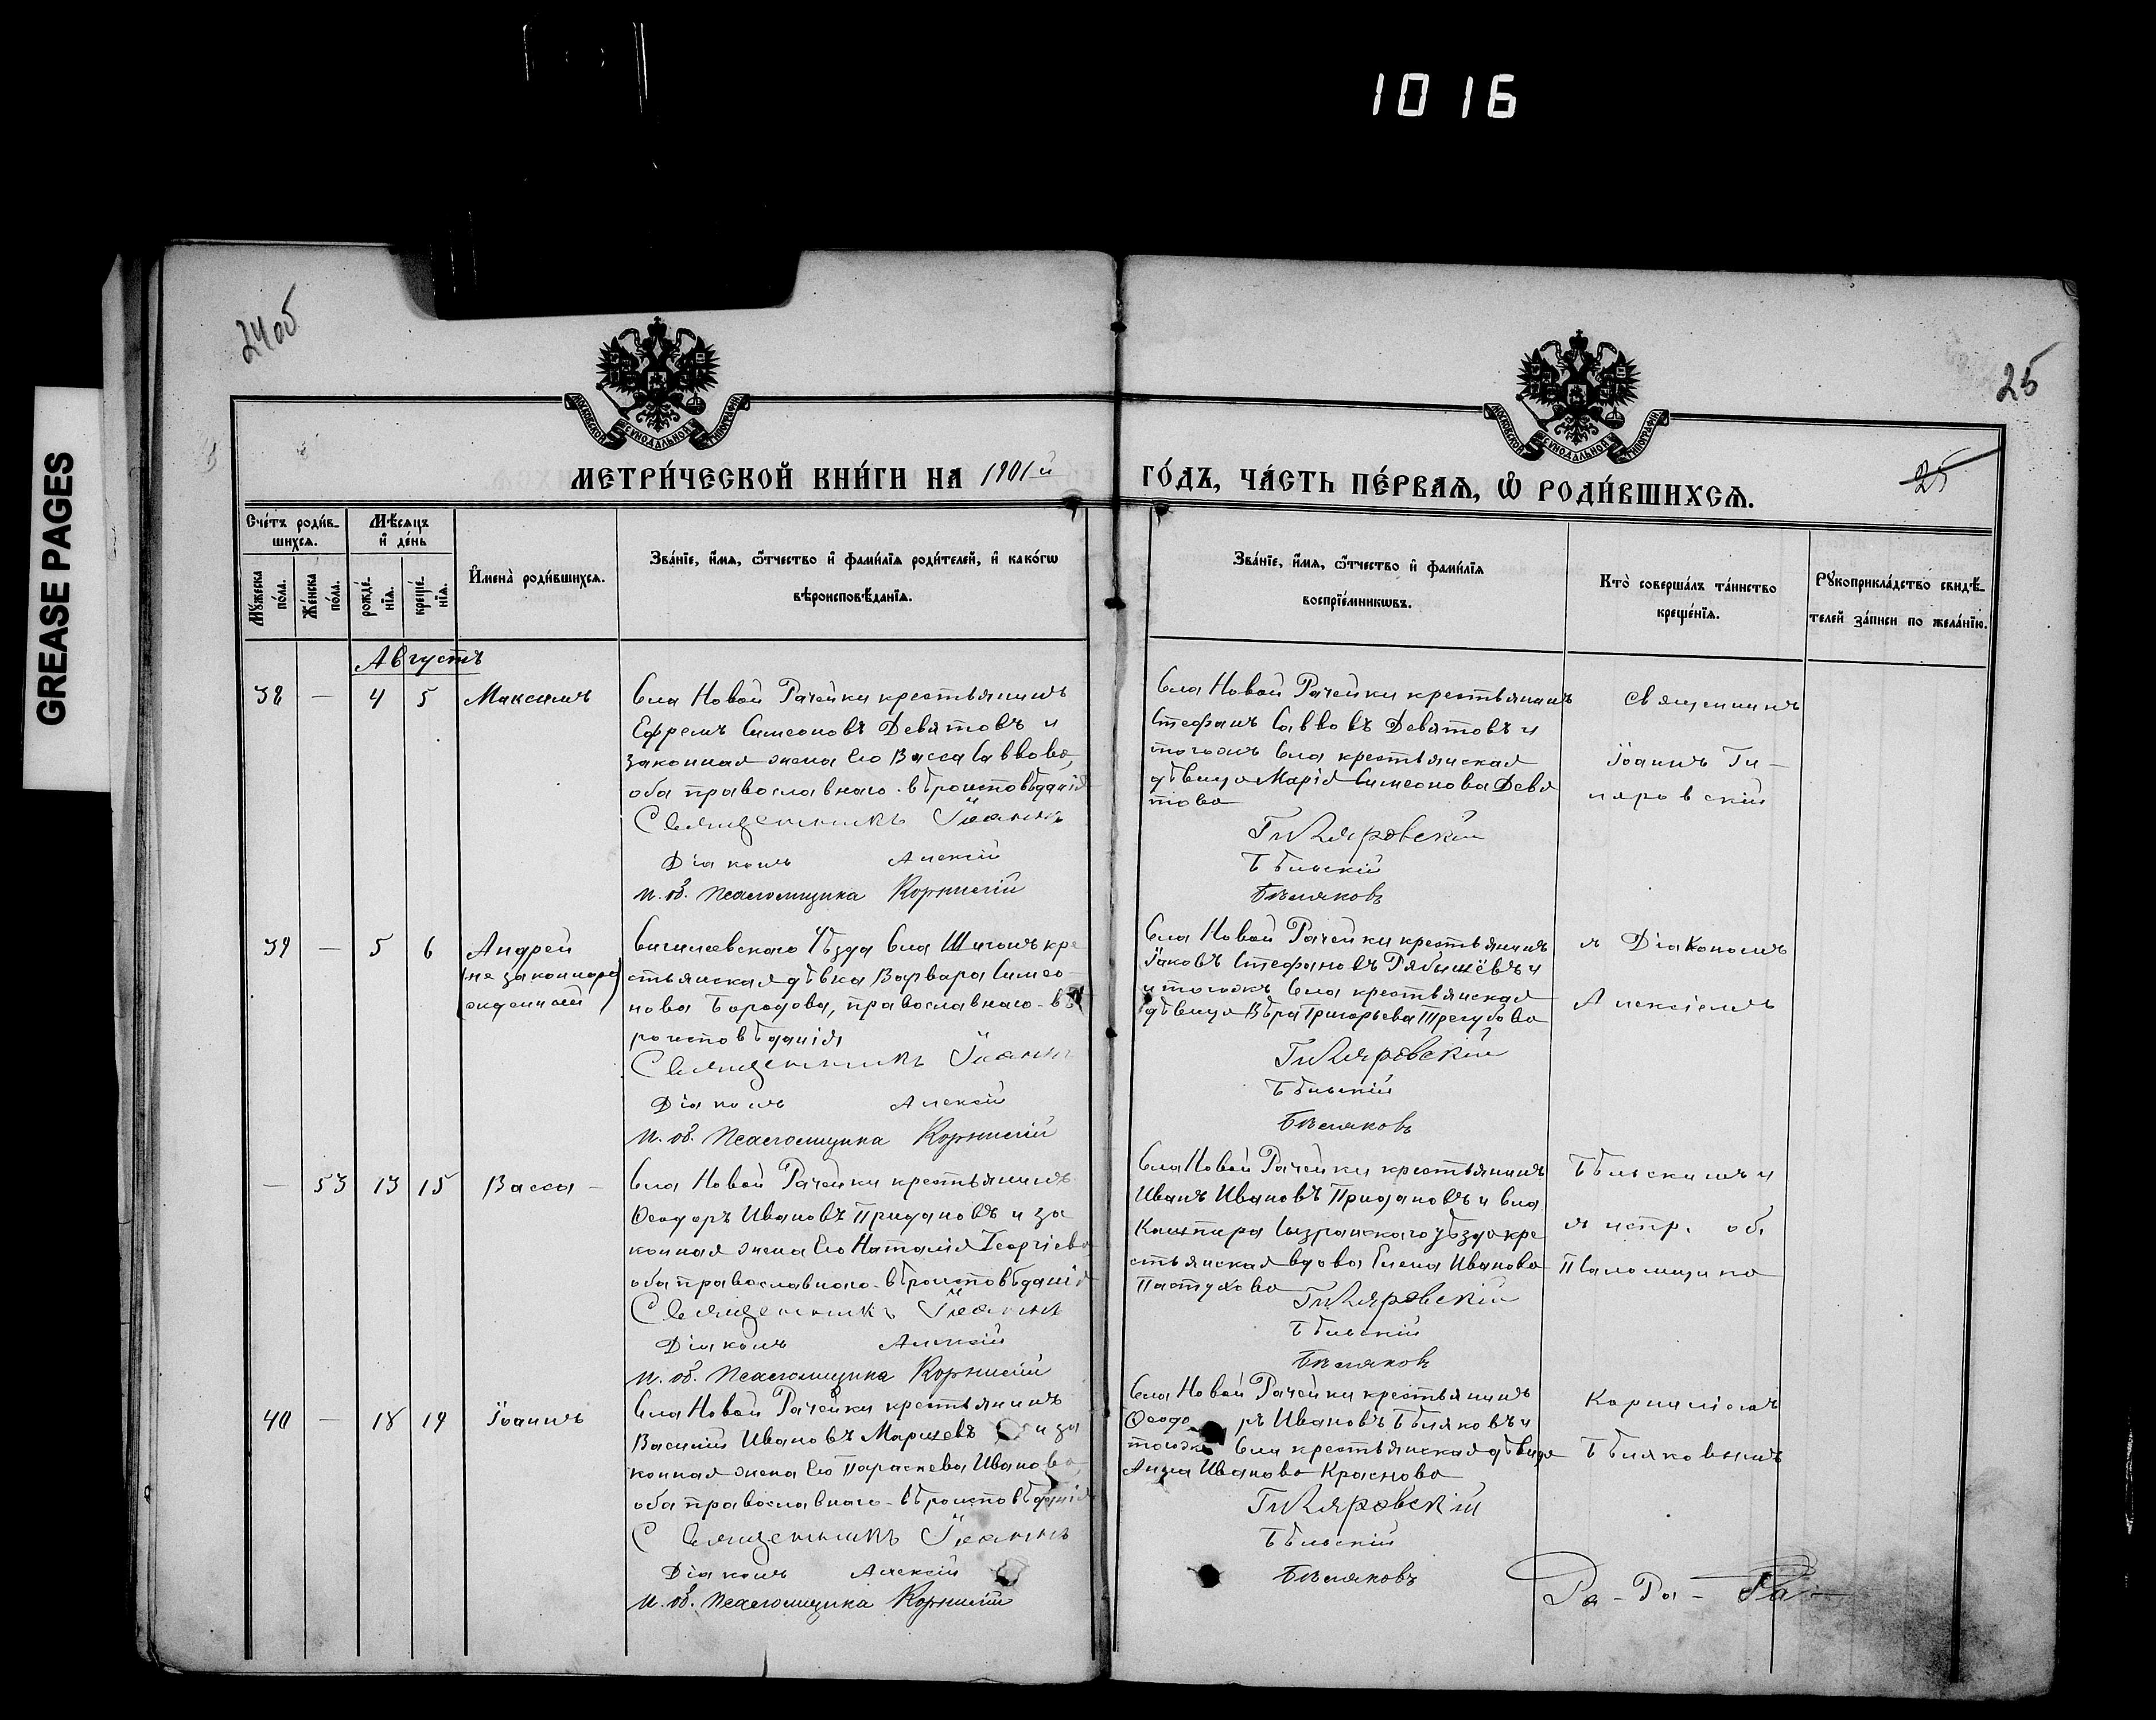 1016
GREASE PAGES
24 об
25
МОСКОВСКОЙ СУНОДАЛЬНОЙ ТИПОГРАФІИ
МОСКОВСКОЙ СУНОДАЛЬНОЙ ТИПОГРАФІИ
МЕТРИ́ЧЕСКОЙ КНИ́ГИ НА 1901й
ГО́ДЪ, ЧА́СТЬ ПЕ́РВАЯ, Ѡ РОДИ́ВШИХСЯ.
25
Сче́тъ роди́в-
шихся.
Мѣ́сяцъ
и҆ де́нь
Мꙋ́жеска
по́ла.
Же́нска
по́ла.
рожде́-
нїя.
креще́-
нїя.
И҆мена̀ роди́вшихся.
Зва́нїе, и҆́мя, ѻ҆́тчество и҆ фамилїя роди́телей, и҆ како́гѡ
вѣроисповѣ́данїя.
Зва́нїе, и҆́мя, ѻ҆́тчество и҆ фами́лїя
воспрїе́мникѡвъ.
Кто̀ соверша́лъ та́инство
креще́нїя.
Рꙋкоприкла́дство свидѣ́-
телей за́писи по жела́нїю.
Августъ
38 — 4 5 Максимъ
Села Новой Рачейки крестьянинъ
Ефремъ Симеоновъ Девятовъ и
законная жена его Васса Саввова,
оба православнаго вѣроисповѣданія
Священникъ Іоаннъ
Діаконъ Алексій
и. об. псаломщика Корнилій
Села Новой Рачейки крестьянинъ
Стефанъ Саввовъ Девятовъ и
тогожъ села крестьянская
дѣвица Марія Симеонова Девя
това
Гиляровскій
Бѣльскій
Бѣляковъ
Священникъ
Іоаннъ Ги-
ляровскій
39 — 5 6 Андрей
(незаконнорож)
(жденный
Сенгилеевскаго Уѣзда Села Шигонъ кре
стьянская дѣвка Варвара Симео-
нова Бородова, православнаго вѣ
роисповѣданія
Священникъ Іоаннъ
Діаконъ Алексій
и. об. псаломщика Корнилій
Села Новой Рачейки крестьянинъ
Іаковъ Стефановъ Рябышёвъ и
и тогожъ села крестьянская
дѣвица Вѣра Григорьева Трегубова
Гиляровскій
Бѣльскій
Бѣляковъ
съ Діакономъ
Алексіемъ
— 53 13 15 Васса —
Села Новой Рачейки крестьянинъ
Ѳеодоръ Ивановъ Придановъ и за
конная жена его Наталія Георгіева
оба православнаго вѣроисповѣданія
Священникъ Іоаннъ
Діаконъ Алексій
и. об. псаломщика Корнилій
Села Новой Рачейки крестьянинъ
Иванъ Ивановъ Придановъ и села
Кашпира Сызранскаго уѣзда кре
стьянская вдова Елена Иванова
Пастухова
Гиляровскій
Бѣльскій
Бѣляковъ
Бѣльскимъ и
и испр. об.
Псаломщика
40 — 18 19 Іоаннъ
Села Новой Рачейки крестьянинъ
Василій Ивановъ и за
конная жена его Параскева Иванова,
оба православнаго вѣроисповѣданія
Священникъ Іоаннъ
Діаконъ Алексій
и. об. псаломщика Корнилій
Села Новой Рачейки крестьянинъ
Ѳеодоръ Ивановъ Бѣляковъ и
тогожъ села крестьянская дѣвица
Анна Иванова Краснова
Гиляровскій
Бѣльскій
Бѣляковъ
Корниліемъ
Бѣляковымъ
Ра - Ра - Ра